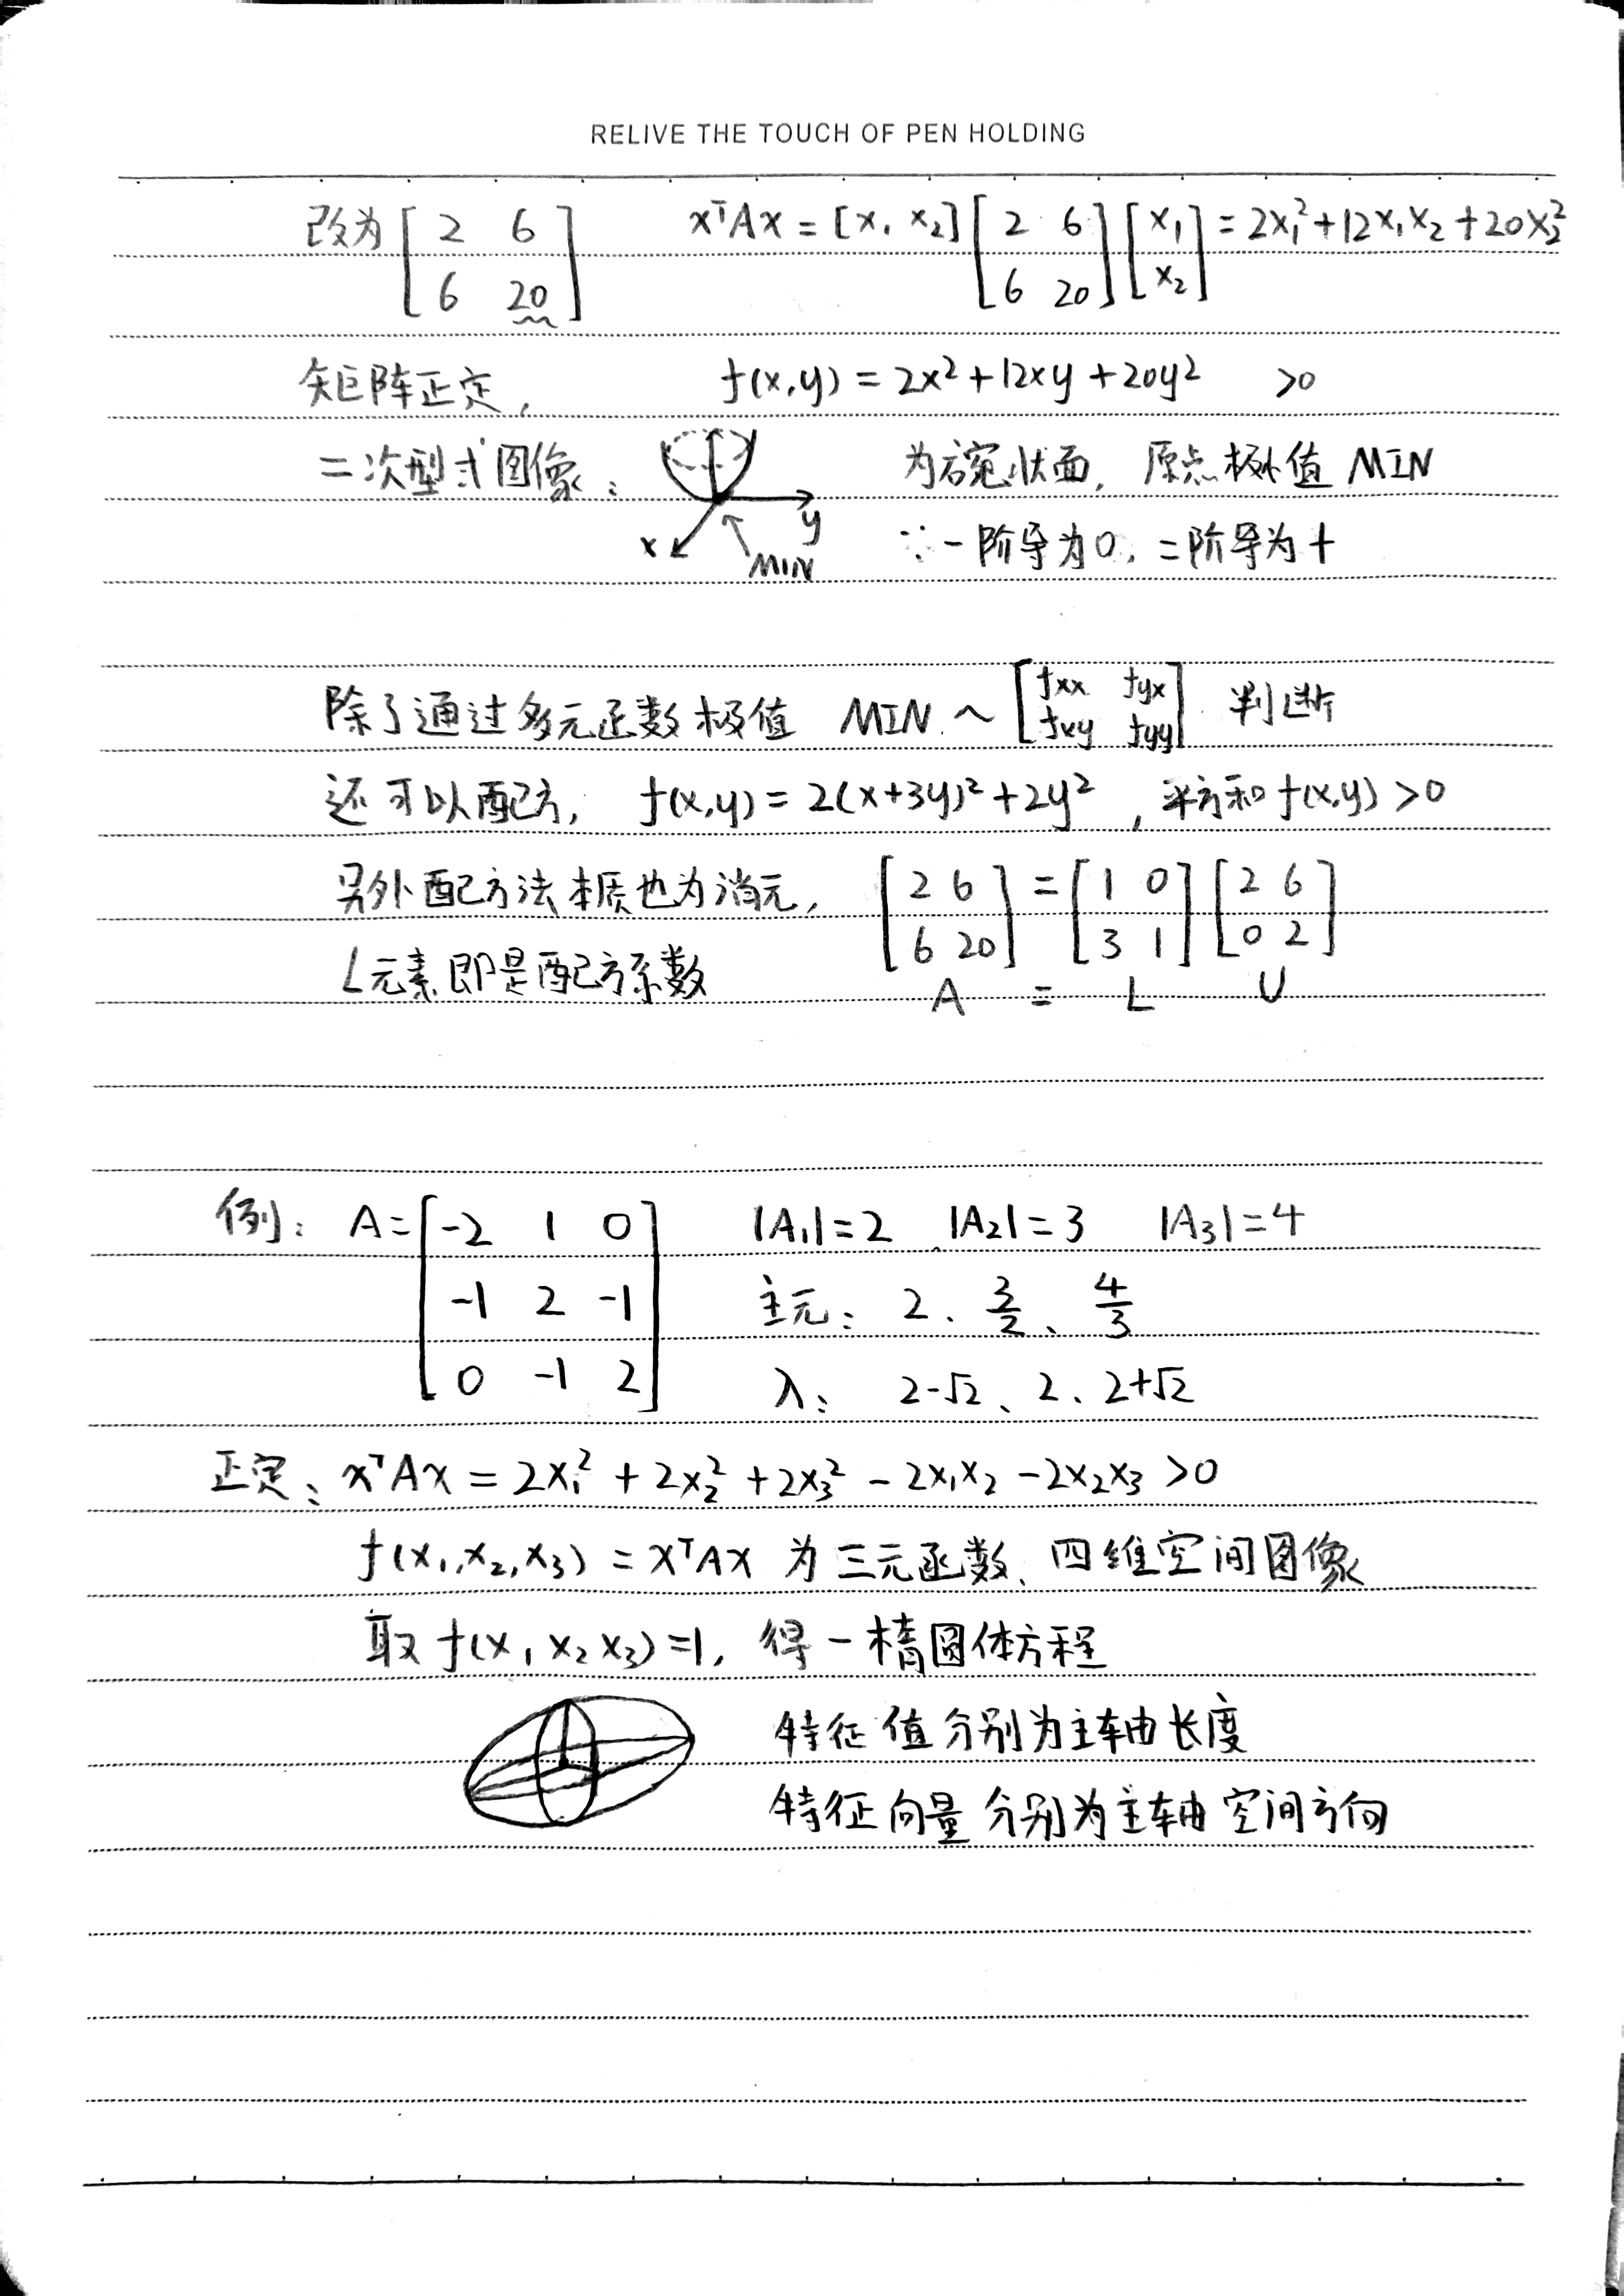 RELIVE THE TOUCH OF PEN HOLDING
改为 [2 6; 6 20] xᵀAx = [x₁ x₂] [2 6; 6 20] [x₁; x₂] = 2x₁² + 12x₁x₂ + 20x₂²
矩阵正定, f(x,y) = 2x² + 12xy + 20y² >0
二次型式图像: 为石宛状面, 原点极小值 MIN
x y MIN ∵一阶导为0, 二阶导为+
除了通过多元函数极值 MIN ~ [fxx fyx; fxy fyy] 判断
还可以配方, f(x,y) = 2(x+3y)² + 2y² , 平方和 f(x,y) >0
另外配方法本质也为消元, [2 6; 6 20] = [1 0; 3 1] [2 6; 0 2]
L元素即是配方系数 A = L U
例: A = [-2 1 0; -1 2 -1; 0 -1 2] |A₁|=2 |A₂|=3 |A₃|=4
主元: 2、3/2、4/3
λ: 2-√2、2、2+√2
正定: xᵀAx = 2x₁² + 2x₂² + 2x₃² - 2x₁x₂ - 2x₂x₃ >0
f(x₁,x₂,x₃) = xᵀAx 为三元函数、四维空间图像
取 f(x₁ x₂ x₃)=1, 得一椭圆体方程
特征值分别为主轴长度
特征向量分别为主轴空间方向